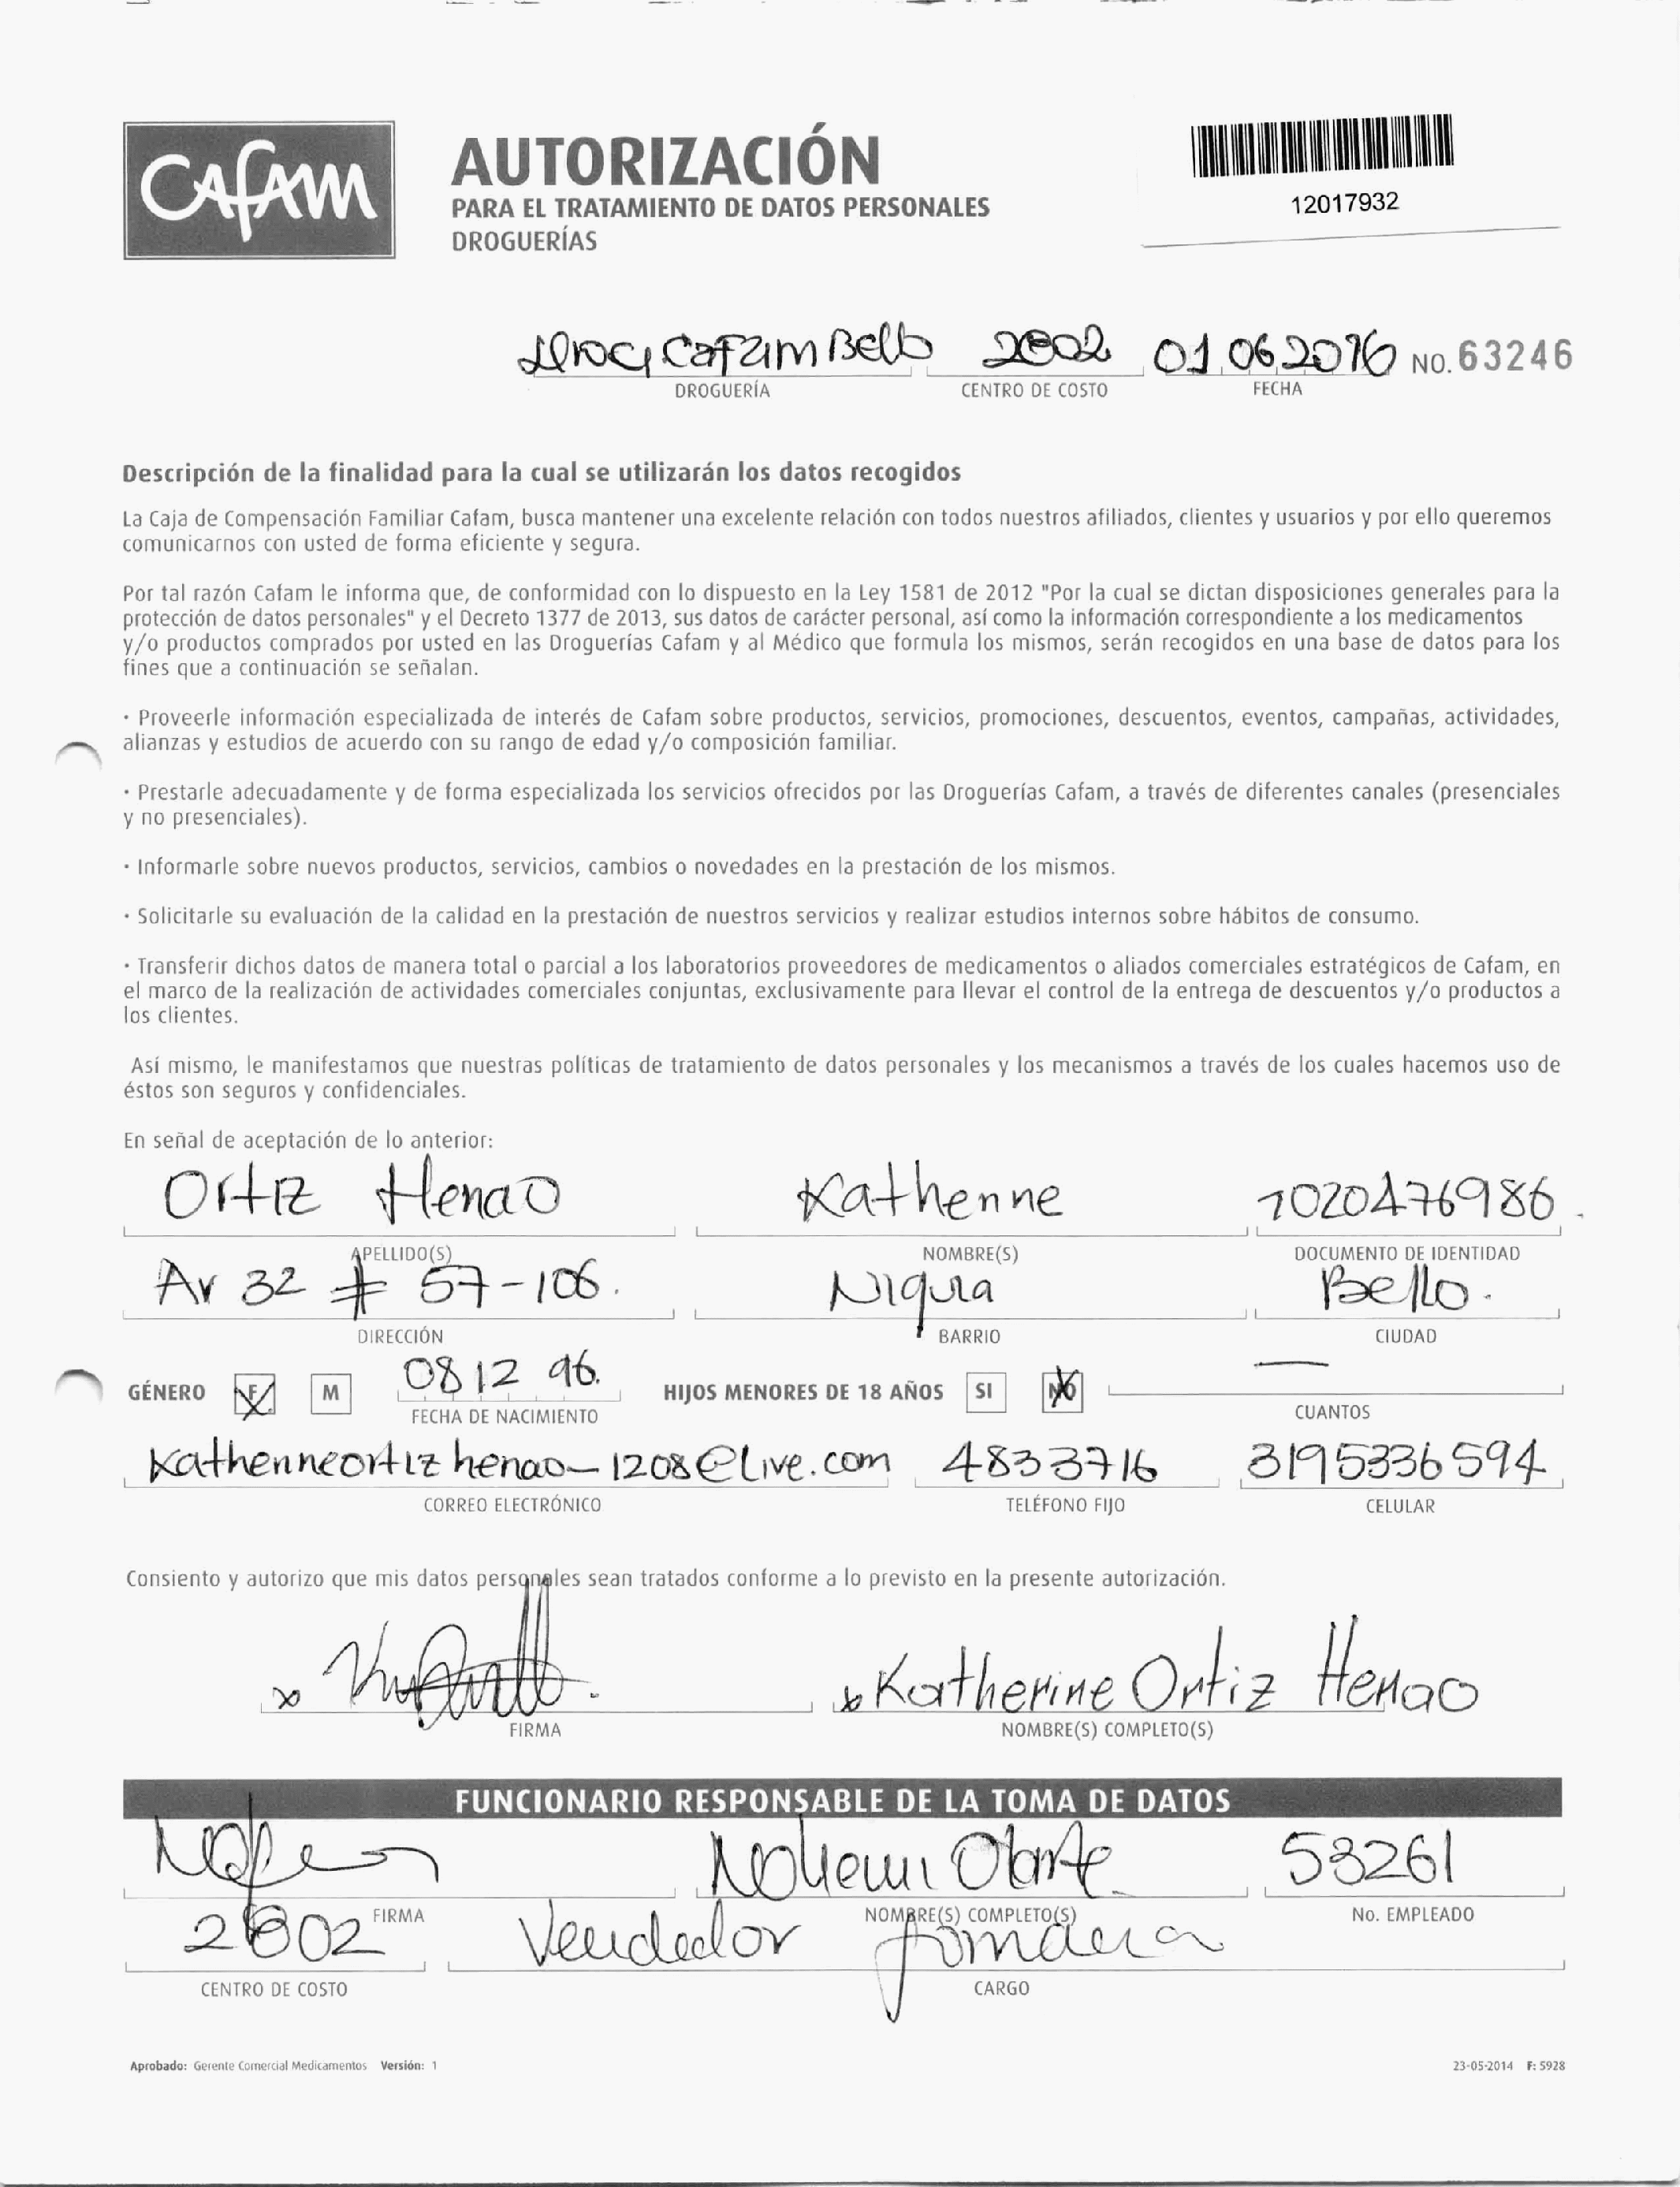 CAFAM
AUTORIZACIÓN
PARA EL TRATAMIENTO DE DATOS PERSONALES
DROGUERÍAS
12017932
Cafam Bello 2802 01 06 2016 NO. 63246
DROGUERÍA CENTRO DE COSTO FECHA
Descripción de la finalidad para la cual se utilizarán los datos recogidos
La Caja de Compensación Familiar Cafam, busca mantener una excelente relación con todos nuestros afiliados, clientes y usuarios y por ello queremos
comunicarnos con usted de forma eficiente y segura.
Por tal razón Cafam le informa que, de conformidad con lo dispuesto en la Ley 1581 de 2012 "Por la cual se dictan disposiciones generales para la
protección de datos personales" y el Decreto 1377 de 2013, sus datos de carácter personal, así como la información correspondiente a los medicamentos
y/o productos comprados por usted en las Droguerías Cafam y al Médico que formula los mismos, serán recogidos en una base de datos para los
fines que a continuación se señalan.
· Proveerle información especializada de interés de Cafam sobre productos, servicios, promociones, descuentos, eventos, campañas, actividades,
alianzas y estudios de acuerdo con su rango de edad y/o composición familiar.
· Prestarle adecuadamente y de forma especializada los servicios ofrecidos por las Droguerías Cafam, a través de diferentes canales (presenciales
y no presenciales).
· Informarle sobre nuevos productos, servicios, cambios o novedades en la prestación de los mismos.
· Solicitarle su evaluación de la calidad en la prestación de nuestros servicios y realizar estudios internos sobre hábitos de consumo.
· Transferir dichos datos de manera total o parcial a los laboratorios proveedores de medicamentos o aliados comerciales estratégicos de Cafam, en
el marco de la realización de actividades comerciales conjuntas, exclusivamente para llevar el control de la entrega de descuentos y/o productos a
los clientes.
Así mismo, le manifestamos que nuestras políticas de tratamiento de datos personales y los mecanismos a través de los cuales hacemos uso de
éstos son seguros y confidenciales.
En señal de aceptación de lo anterior:
Ortiz Henao Katherine 1020476986.
APELLIDO(S) NOMBRE(S) DOCUMENTO DE IDENTIDAD
Av 32 # 57-106. Niquia Bello.
DIRECCIÓN BARRIO CIUDAD
GÉNERO F M 08 12 96. HIJOS MENORES DE 18 AÑOS SI NO —
FECHA DE NACIMIENTO CUANTOS
Katherineortizhenao_1208@live.com 4833716 3195336594
CORREO ELECTRÓNICO TELÉFONO FIJO CELULAR
Consiento y autorizo que mis datos personales sean tratados conforme a lo previsto en la presente autorización.
x x Katherine Ortiz Henao
FIRMA NOMBRE(S) COMPLETO(S)
FUNCIONARIO RESPONSABLE DE LA TOMA DE DATOS
Nohemi Olarte 53261
FIRMA NOMBRE(S) COMPLETO(S) No. EMPLEADO
2802 Vendedor
CENTRO DE COSTO CARGO
Aprobado: Gerente Comercial Medicamentos Versión: 1 23-05-2014 F: 5928